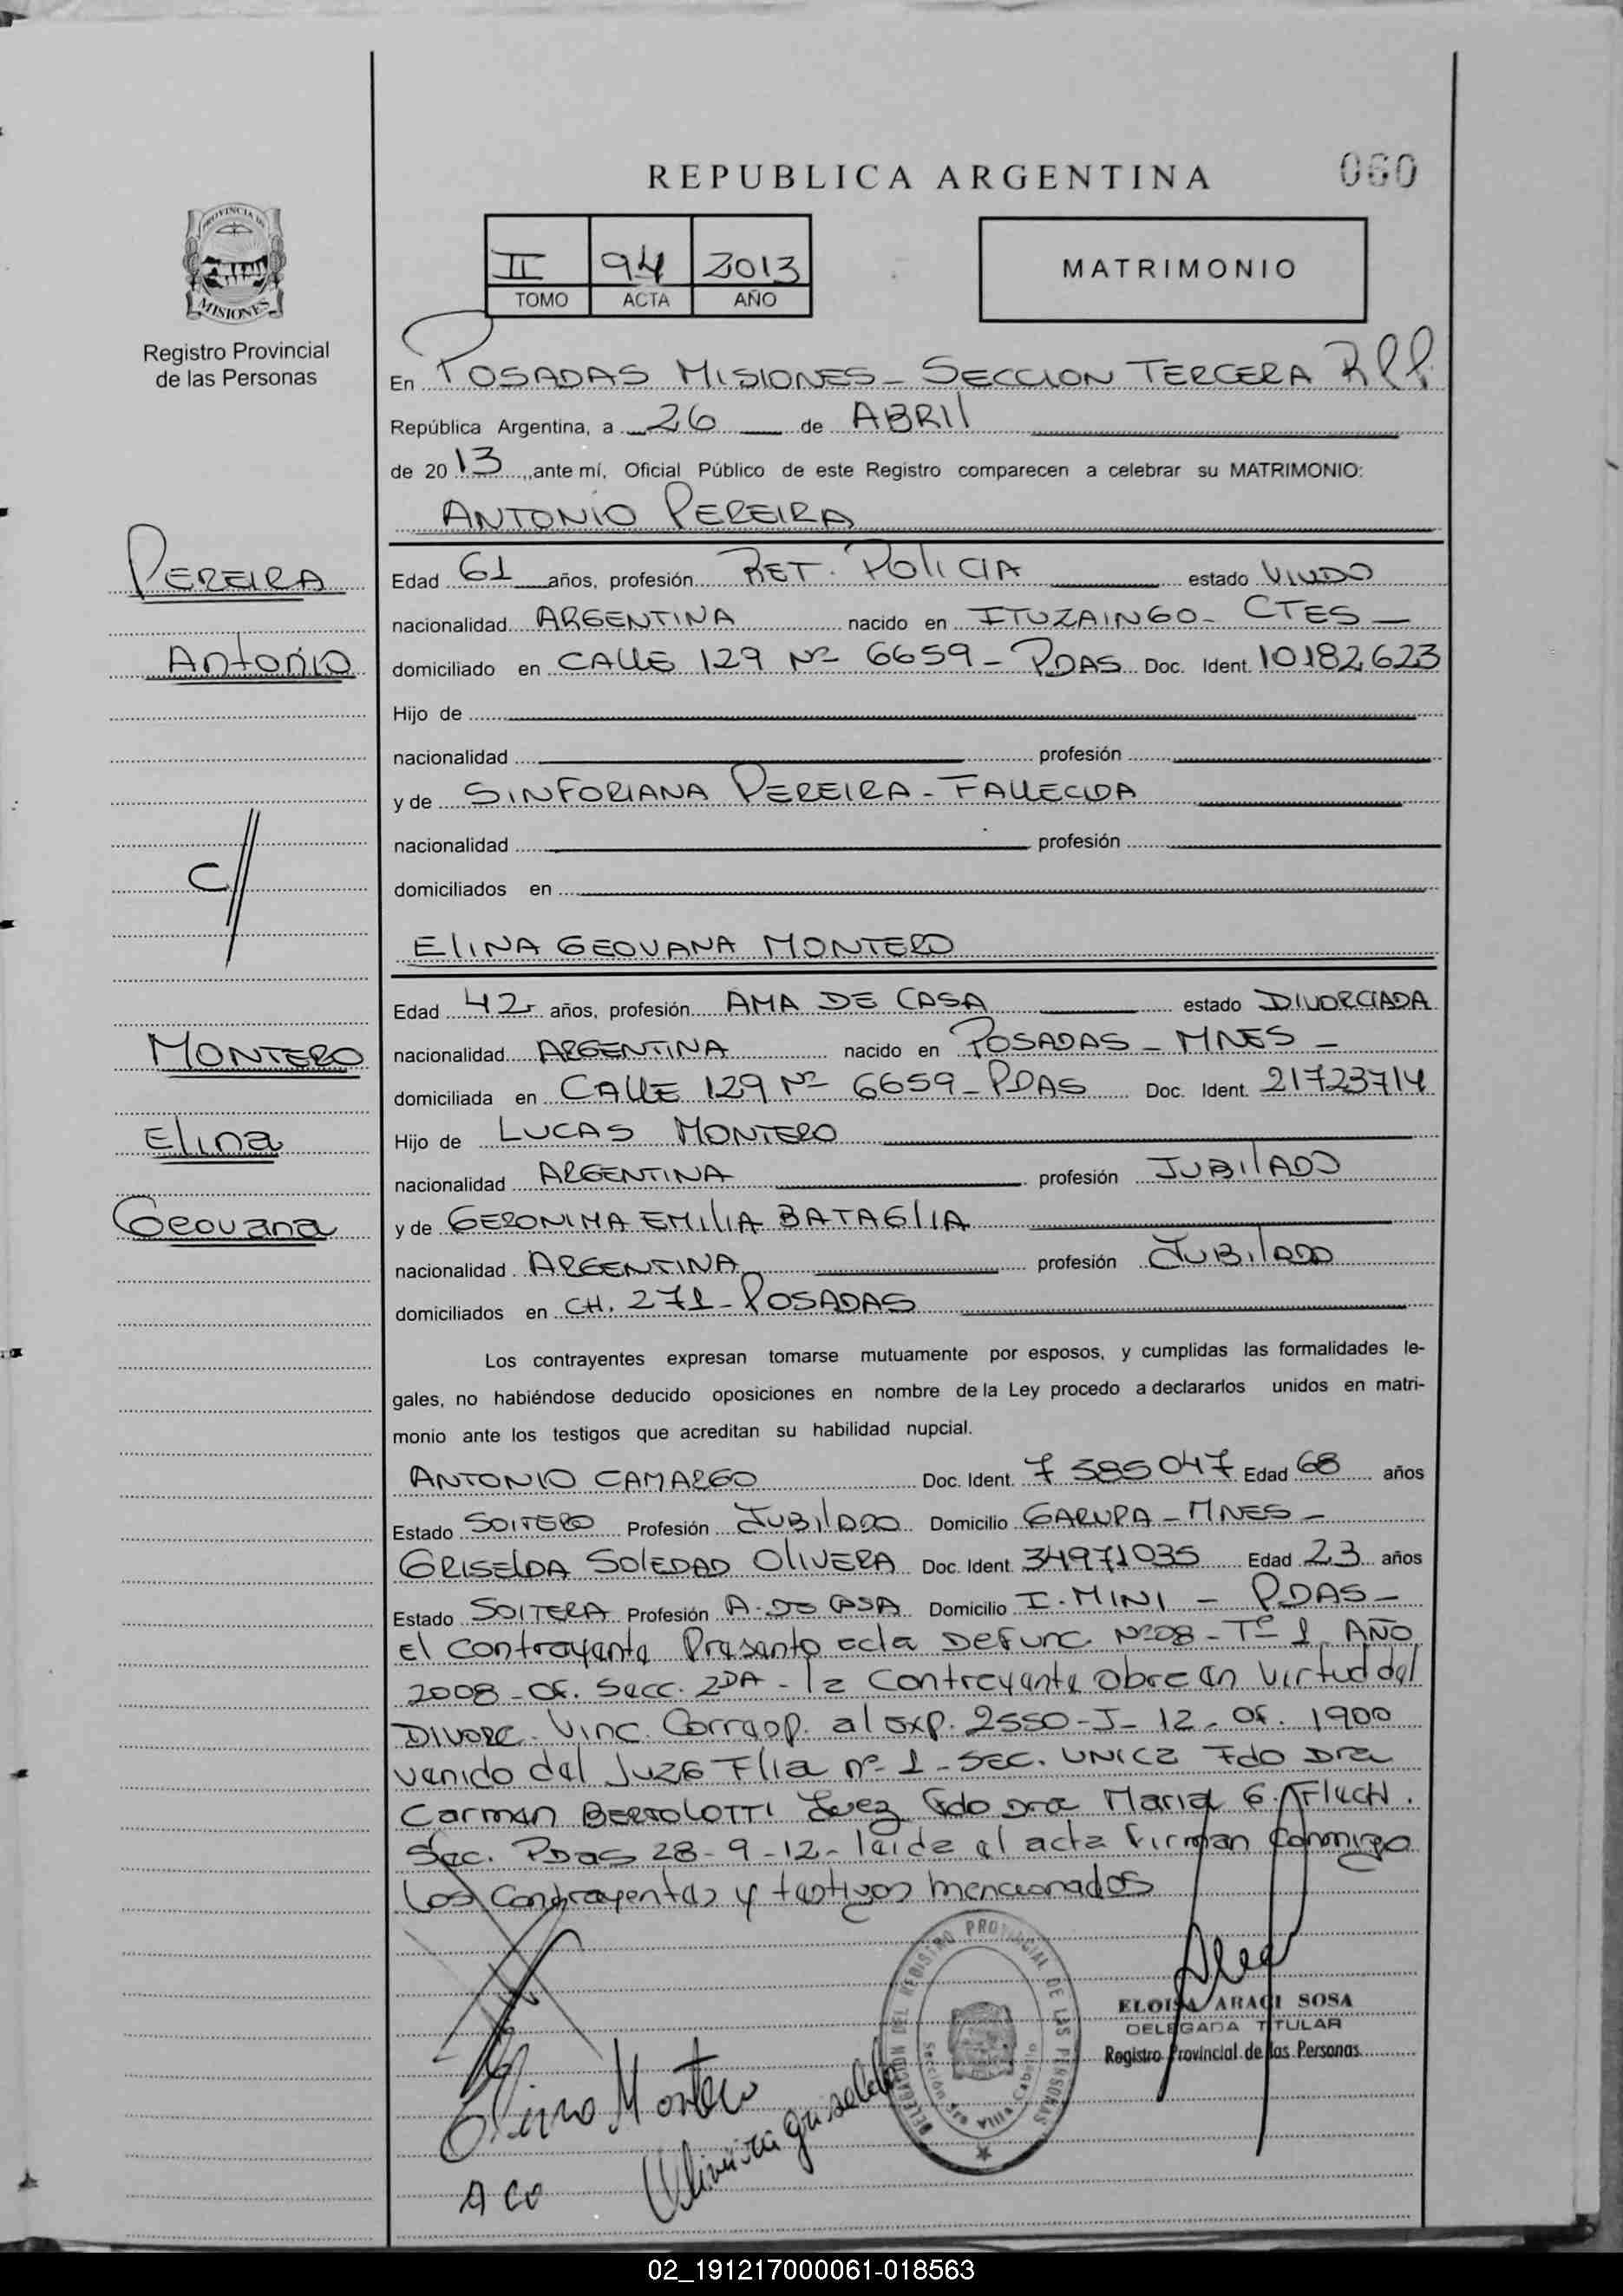 REPUBLICA ARGENTINA
060
PROVINCIA DE
MISIONES
Registro Provincial
de las Personas
II 94 2013
TOMO ACTA AÑO
MATRIMONIO
En POSADAS MISIONES - SECCION TERCERA RPP
República Argentina, a 26 de ABRIl
de 2013, ante mí, Oficial Público de este Registro comparecen a celebrar su MATRIMONIO:
ANTONIO PEREIRA
PEREIRA
Antonio
C//
MONTERO
Elina
Geovana
Edad 61 años, profesión RET. POliCIA estado VIUDO
nacionalidad ARGENTINA nacido en ITUZAINGO - CTES -
domiciliado en CALLE 129 Nº 6659 - PDAS Doc. Ident. 10182623
Hijo de
nacionalidad profesión
y de SINFORIANA PEREIRA - FALLECIDA
nacionalidad profesión
domiciliados en
ElINA GEOVANA MONTERO
Edad 42 años, profesión AMA DE CASA estado DIVORCIADA
nacionalidad ARGENTINA nacido en POSADAS - MNES -
domiciliada en CALLE 129 Nº 6659 - PDAS Doc. Ident. 21723714
Hijo de LUCAS MONTERO
nacionalidad ARGENTINA profesión JUBIlADO
y de GERONIMA EMIlIA BATAGlIA
nacionalidad ARGENTINA profesión JUBIlADO
domiciliados en CH. 271 - POSADAS
Los contrayentes expresan tomarse mutuamente por esposos, y cumplidas las formalidades le-
gales, no habiéndose deducido oposiciones en nombre de la Ley procedo a declararlos unidos en matri-
monio ante los testigos que acreditan su habilidad nupcial.
ANTONIO CAMARGO Doc. Ident. 7585047 Edad 68 años
Estado SOlTERO Profesión JUBIlADO Domicilio GARUPA - MNES -
GRISElDA SOlEDAD OlIVERA Doc. Ident. 34971035 Edad 23 años
Estado SOlTERA Profesión A. DE CASA Domicilio I. MINI - PDAS -
El contrayente Presento acta Defunc. Nº08 - Tº 1 AÑO
2008 - Of. Secc. 2DA - la contreyente obre en virtud del
DIVORC. Vinc. Corresp. al exp. 2550-J- 12. Of. 1900
venido del Juzg Flia nº 1 - SEC. UNICa Fdo Dra
Carmen BERTOLOTTI Juez Fdo Dra Maria G. Fluch.
Sec. PDas 28-9-12- leida el acta firman conmigo
los contrayentes y testigos mencionados
Elina Montero
A Co
Olivera griselda
DELEGACION DEL REGISTRO PROVINCIAL DE LAS PERSONAS
Sección 3ra Villa Cabello
ELOISA ARACI SOSA
DELEGADA TITULAR
Registro Provincial de las Personas
02_191217000061-018563